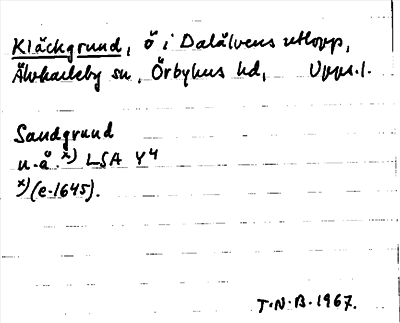 Kläckgrund, ö i Dalälvens utlopp,
Älvkarleby sn, Örbyhus hd, Upps. l.
Sandgrund
u. å. x) LSA Y4
x) (e. 1645).
T.N.B. 1967.